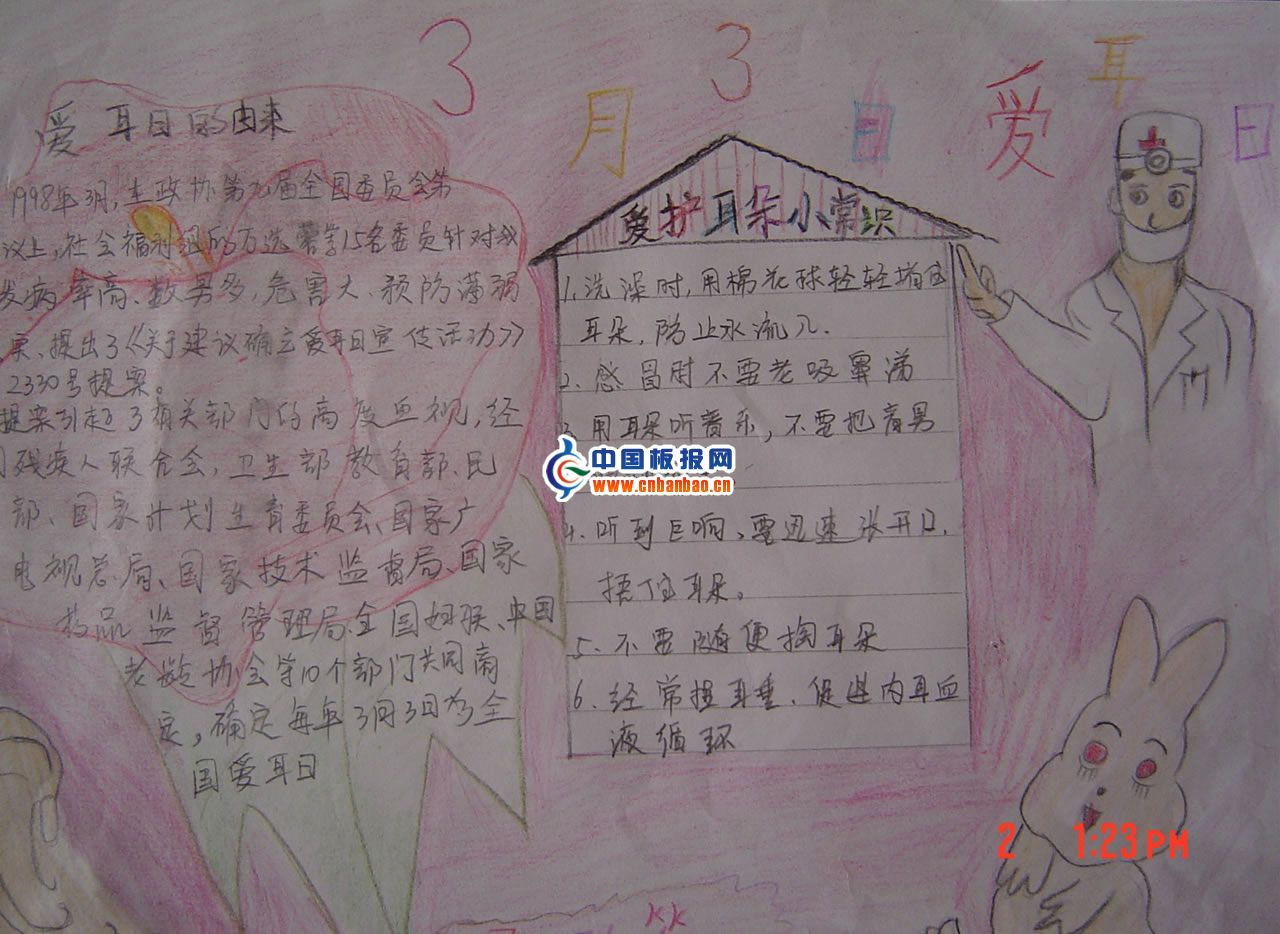 3月3日爱耳日
爱耳日的由来
1998年3月,在政协第九届全国委员会第
议上,社会福利组的万选蓉等15名委员针对我
发病率高、数男多,危害大、预防薄弱
实、提出了《关于建议确立爱耳日宣传活动》
2330号提案。
提案引起了有关部门的高度血视,经
残疾人联合会,卫生部教育部、民
部、国家计划生育委员会、国家广
电视总局、国家技术监督局、国家
药品监督管理局、全国妇联、中国
老龄协会等10个部门共同商
定,确定每年3月3日为了全
国爱耳日
爱护耳朵小常识
1.洗澡时,用棉花球轻轻堵住
耳朵,防止水流入.
2、感冒时不要老吸鼻涕
3.用耳朵听音乐,不要把音男
4.听到巨响、要迅速张开口,
捂住耳朵。
5.不要随便掏耳朵
6、经常提耳垂、促进内耳血
液循环
中国板报网
www.cnbanbao.cn
2 1:23PM
KK